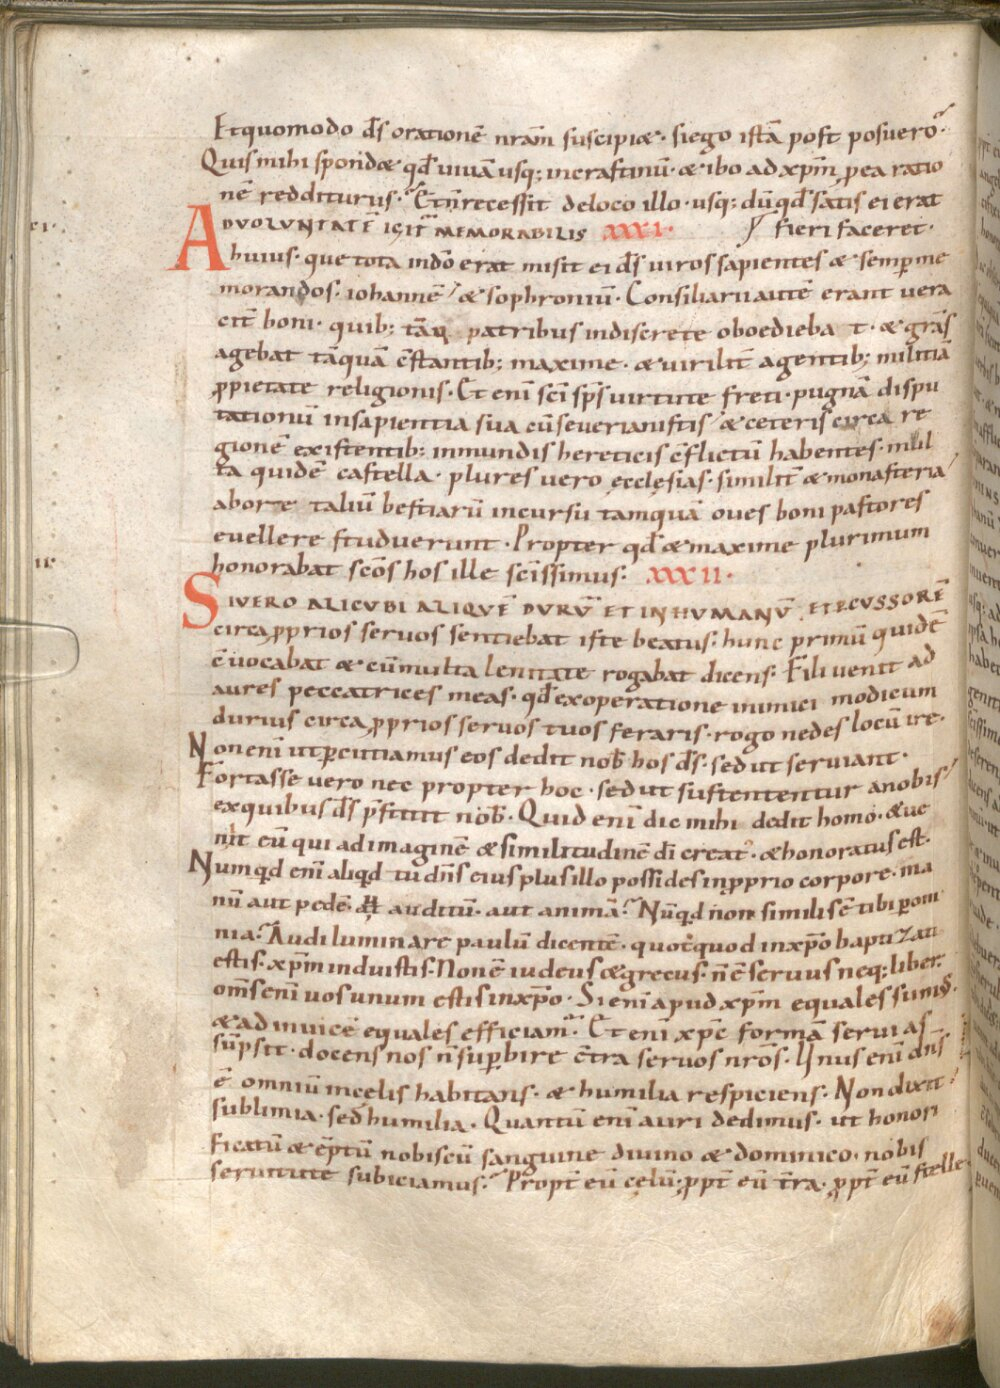 Et quomodo ds̄ orationē nr̄am suscipiæ · si ego istā post posuero ·
Quis mihi spondæ qđ vivā usq; in crastinū · æ ibo ad xpm̄ ꝓ ea ratio
nē redditurus · Et n̄ recessit de loco illo · usq; dū qđ satis ei erat
AD VOLUNTATĒ IGIT̄ MEMORABILIS XXXI · fieri faceret ·
huius · que tota in dō erat misit ei ds̄ viros sapientes æ semp me
morandos · iohannē æ sophroniū · Consiliarii autē erant vera
cit̄ boni · quib; tāq patribus indiscrete oboedieba t · æ grās
agebat tāquā c̄stantib; maxime · æ virilit̄ agentib; militiā
ꝓ pietate religionis · Et enī sci sps̄ virtute freti · pugnā dispu
tationū in sapientia sua cū severianistis æ ceteris circa re
gionē existentib; inmundis hereticis c̄flictū habentes · mul
ta quidē castella · plures vero ęcclesias · similit̄ æ monasteria
ab ore taliū bestiarū incursu tamquā oves boni pastores
evellere studuerunt · Propter qđ æ maxime plurimum
honorabat scōs hos ille scīssimus : XXXII ·
SI VERO ALICUBI ALIQUĒ DURŪ ET INHUMANŪ · ET PCUSSORĒ
circa ꝓprios servos sentiebat iste beatus : hunc primū quidē
c̄vocabat æ cū multa lenitate rogabat dicens · Fili venit ad
aures peccatrices meas · qđ ex operatione inimici modicum
durius circa ꝓprios servos tuos feraris · rogo ne des locū ire ·
Non enī ut percutiamus eos dedit nob̄ hos ds̄ · sed ut serviant ·
Fortasse vero nec propter hoc · sed ut sustententur a nobis
ex quibus ds̄ p̄stitit nob̄ · Quid enī dic mihi dedit homo · æ ve
nit eū qui ad imaginē æ similitudinē dī creat · æ honoratus est ·
Numqđ enī aliqđ tu dn̄s eius plus illo possides in ꝓprio corpore · ma
nū aut pedē · aut auditū · aut animā · Nūqđ non similis ē tibi p om
nia · Audi luminare paulū dicentē · quotquod in xpō baptizati
estis · xpm̄ induistis · Non ē iudeus æ grecus · n̄ ē servus neq; liber ·
om̄s enī vos unum estis in xpō · Si enī apud xpm̄ equales sumus ·
æ ad invicē equales efficiam · Et enī xpc̄ formā servi as
sūpsit · docens nos n̄ supbire c̄tra servos nrōs · Unus enī dn̄s
ē omniū in celis habitans · æ humilia respiciens · Non dixit
sublimia · sed humilia · Quantū enī auri dedimus · ut honori
ficatū æ ēptū nobiscū sanguine divino æ dominico · nobis
servitute subiciamus · Propt̄ eū celū · ꝓpt̄ eū t̄ra · ꝓpt̄ eū stelle